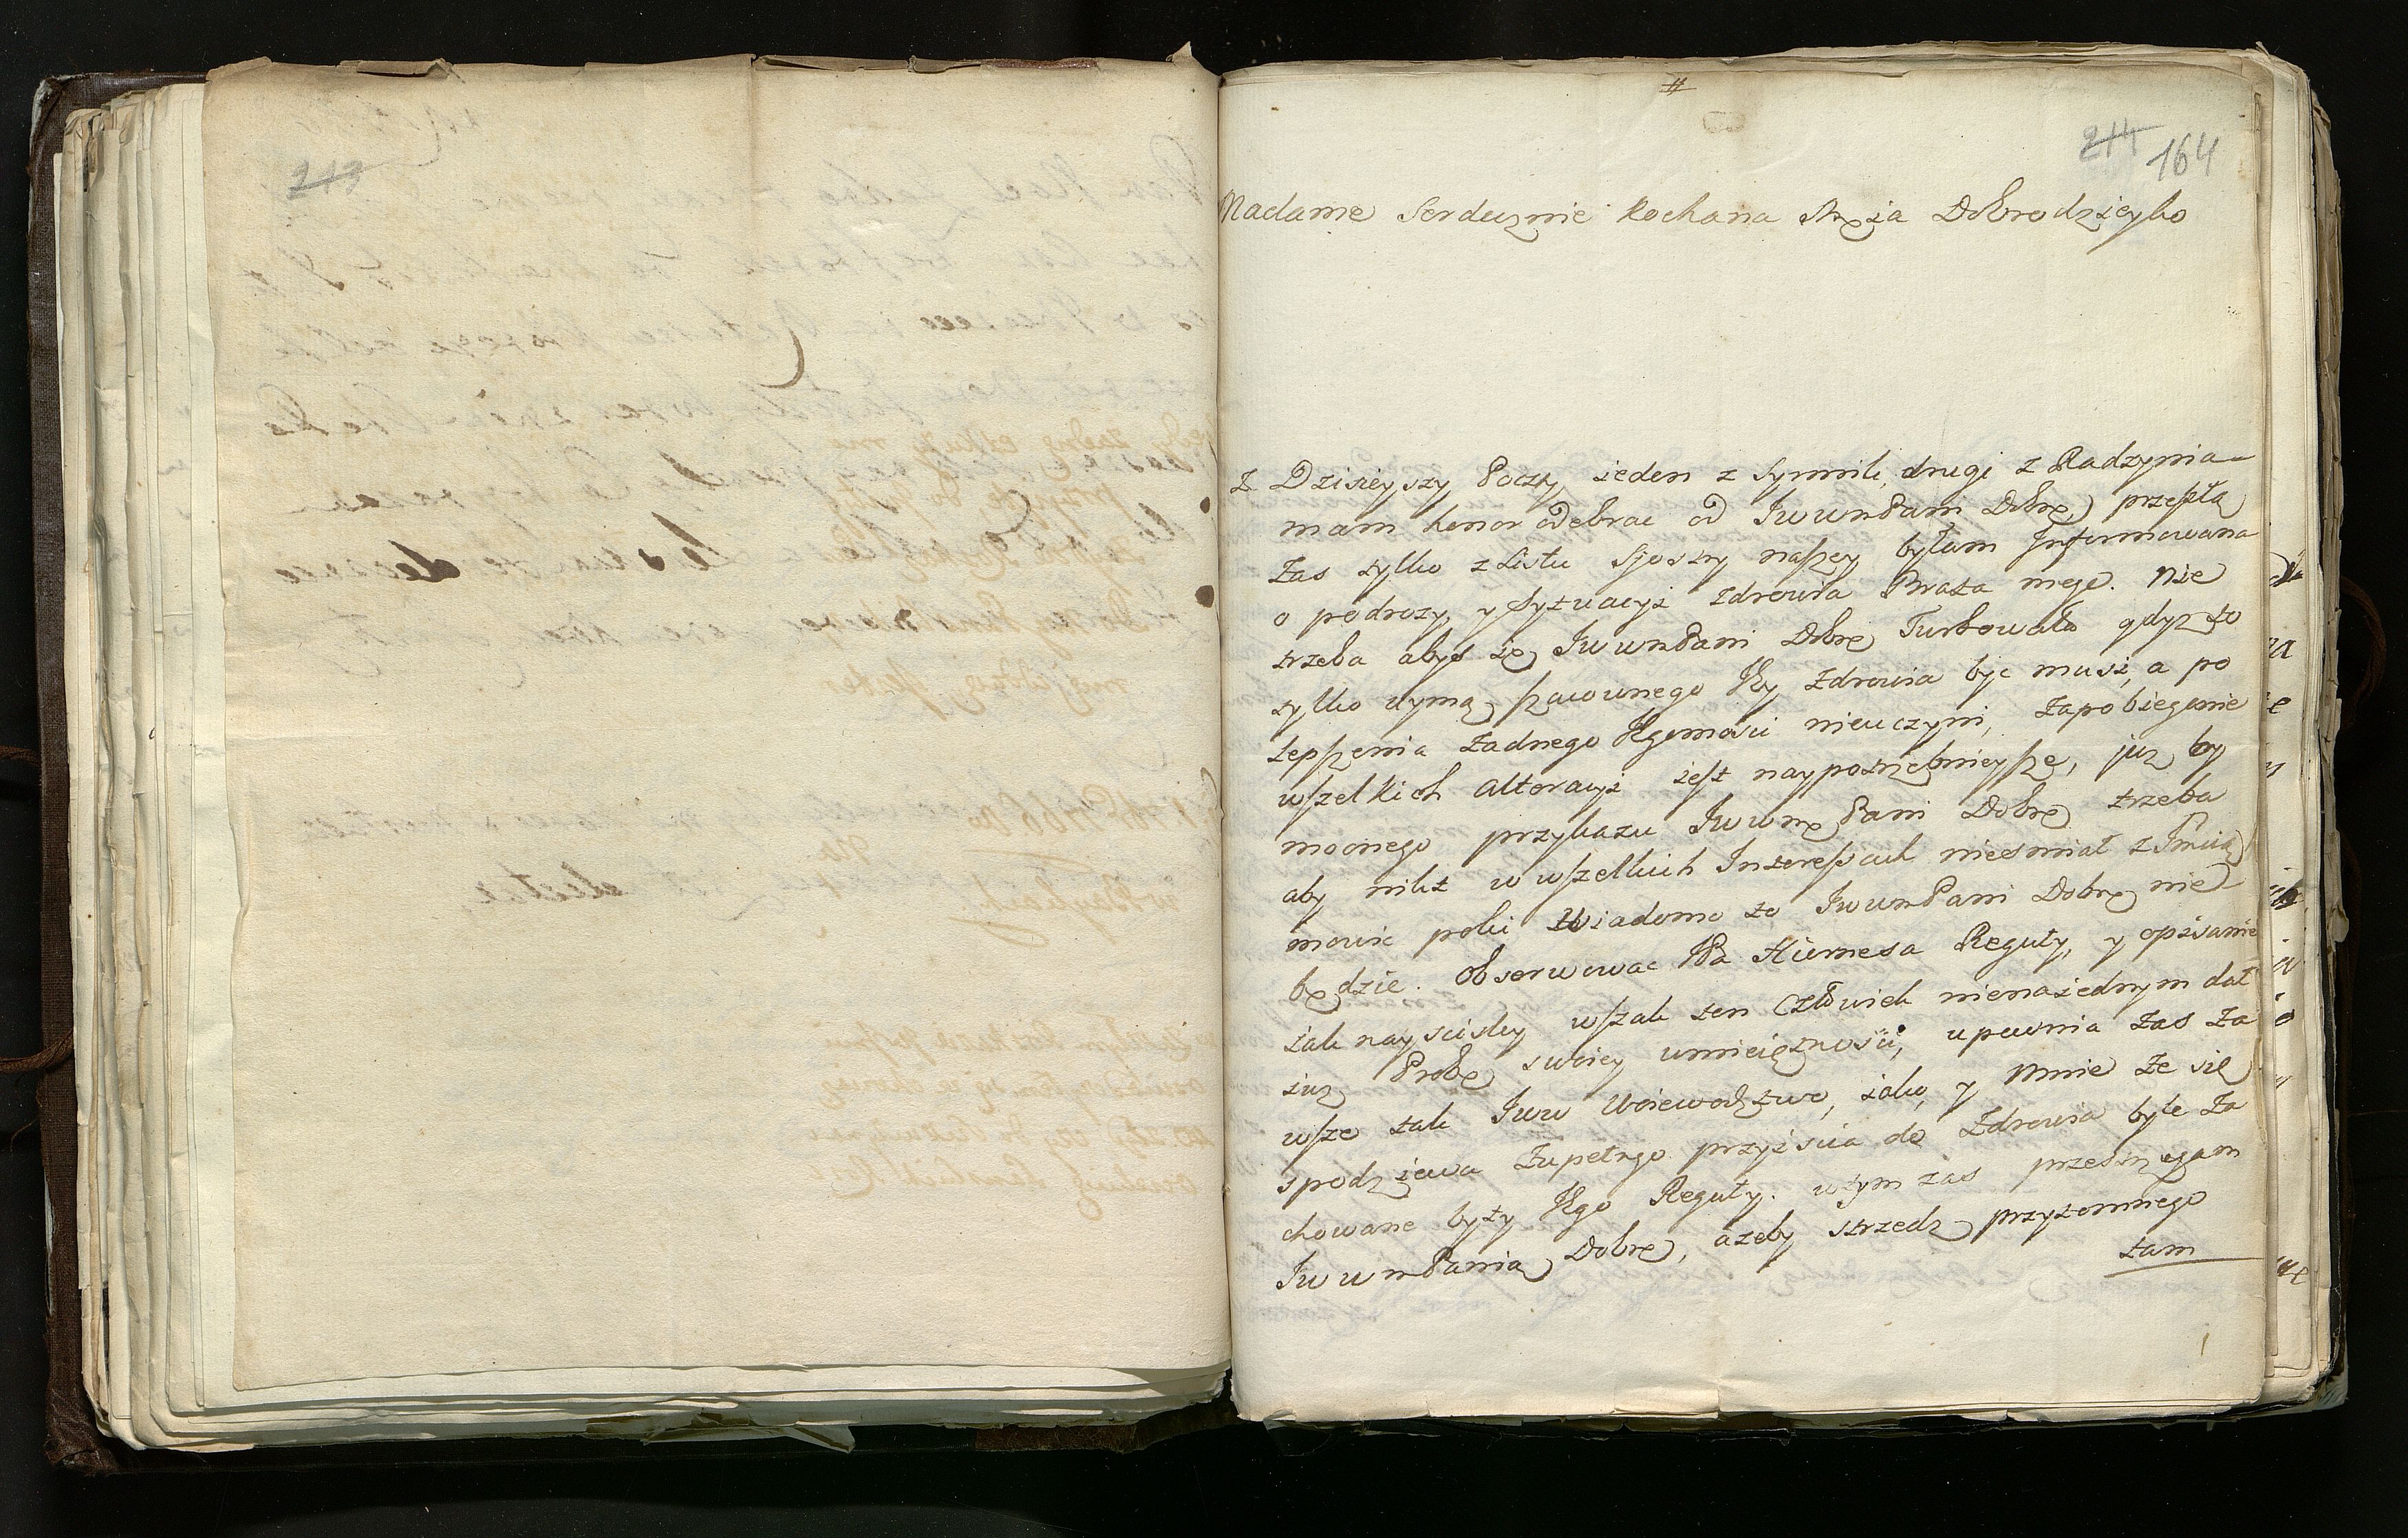 213
#
214 164
Madame Serdecznie kochana Dobrodzieyko
z Dzisieyszy Poczty ieden z Symnili, drugi z Radzynia
mam honor odebrac od Iw wm Pani Dobrę, przeszłą
zas tylko z Listu Sjostry naszey byłam Informowana
o podrozy, y Sytuacyi zdrowia Brata mego. Nie
trzeba abys się Iw wm Pani Dobrę Turbowała gdysz to
tylko uymą szacownego Jey zdrowia byc musi, a po
lepszenia zadnego Jegomosci nieuczyni, zapobieganie
wszelkich alteracyi iest naypotrzebnieysze, jusz by
mocnego przykazu Iw wm Pani Dobrę trzeba
aby nikt w wszelkich Interessach niesmiał z Imcią
mowic poki Wiadomo to Iw wm Pani Dobrę nie
będzie. Obserwowac Pa Hiumesa Reguły, y opisanie
iak nayscisley wszak ten Człowiek nienaiednym dał
iusz Probę swoiey umieiętnosci, upewnia zas za
wsze tak Iww Woiewodztwo, iako, y Mnie ze się
spodziewa zupełnego przyiscia do Zdrowia byle za
chowane były Jego Reguły. w tym zas przestrzegam
Iw wm Panią Dobrę, azeby strzedz przytomnego
tam